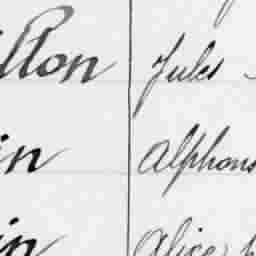 llon Jules
in Alphons
in Alice